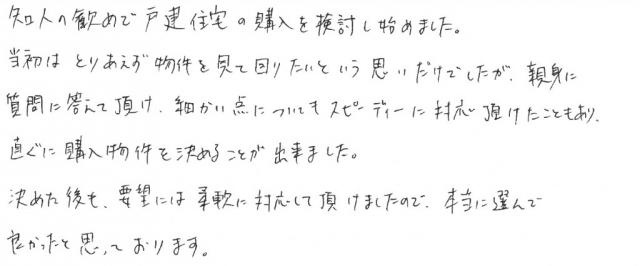 知人の歓めで戸建住宅の購入を検討し始めました。
当初はとりあえず物件を見て回りたいという思いだけでしたが、親身に
質問に答えて頂け、細かい点についてもスピーディーに対応頂けたこともあり、
直ぐに購入物件を決めることが出来ました。
決めた後も、要望には柔軟に対応して頂けましたので、本当に選んで
良かったと思っております。